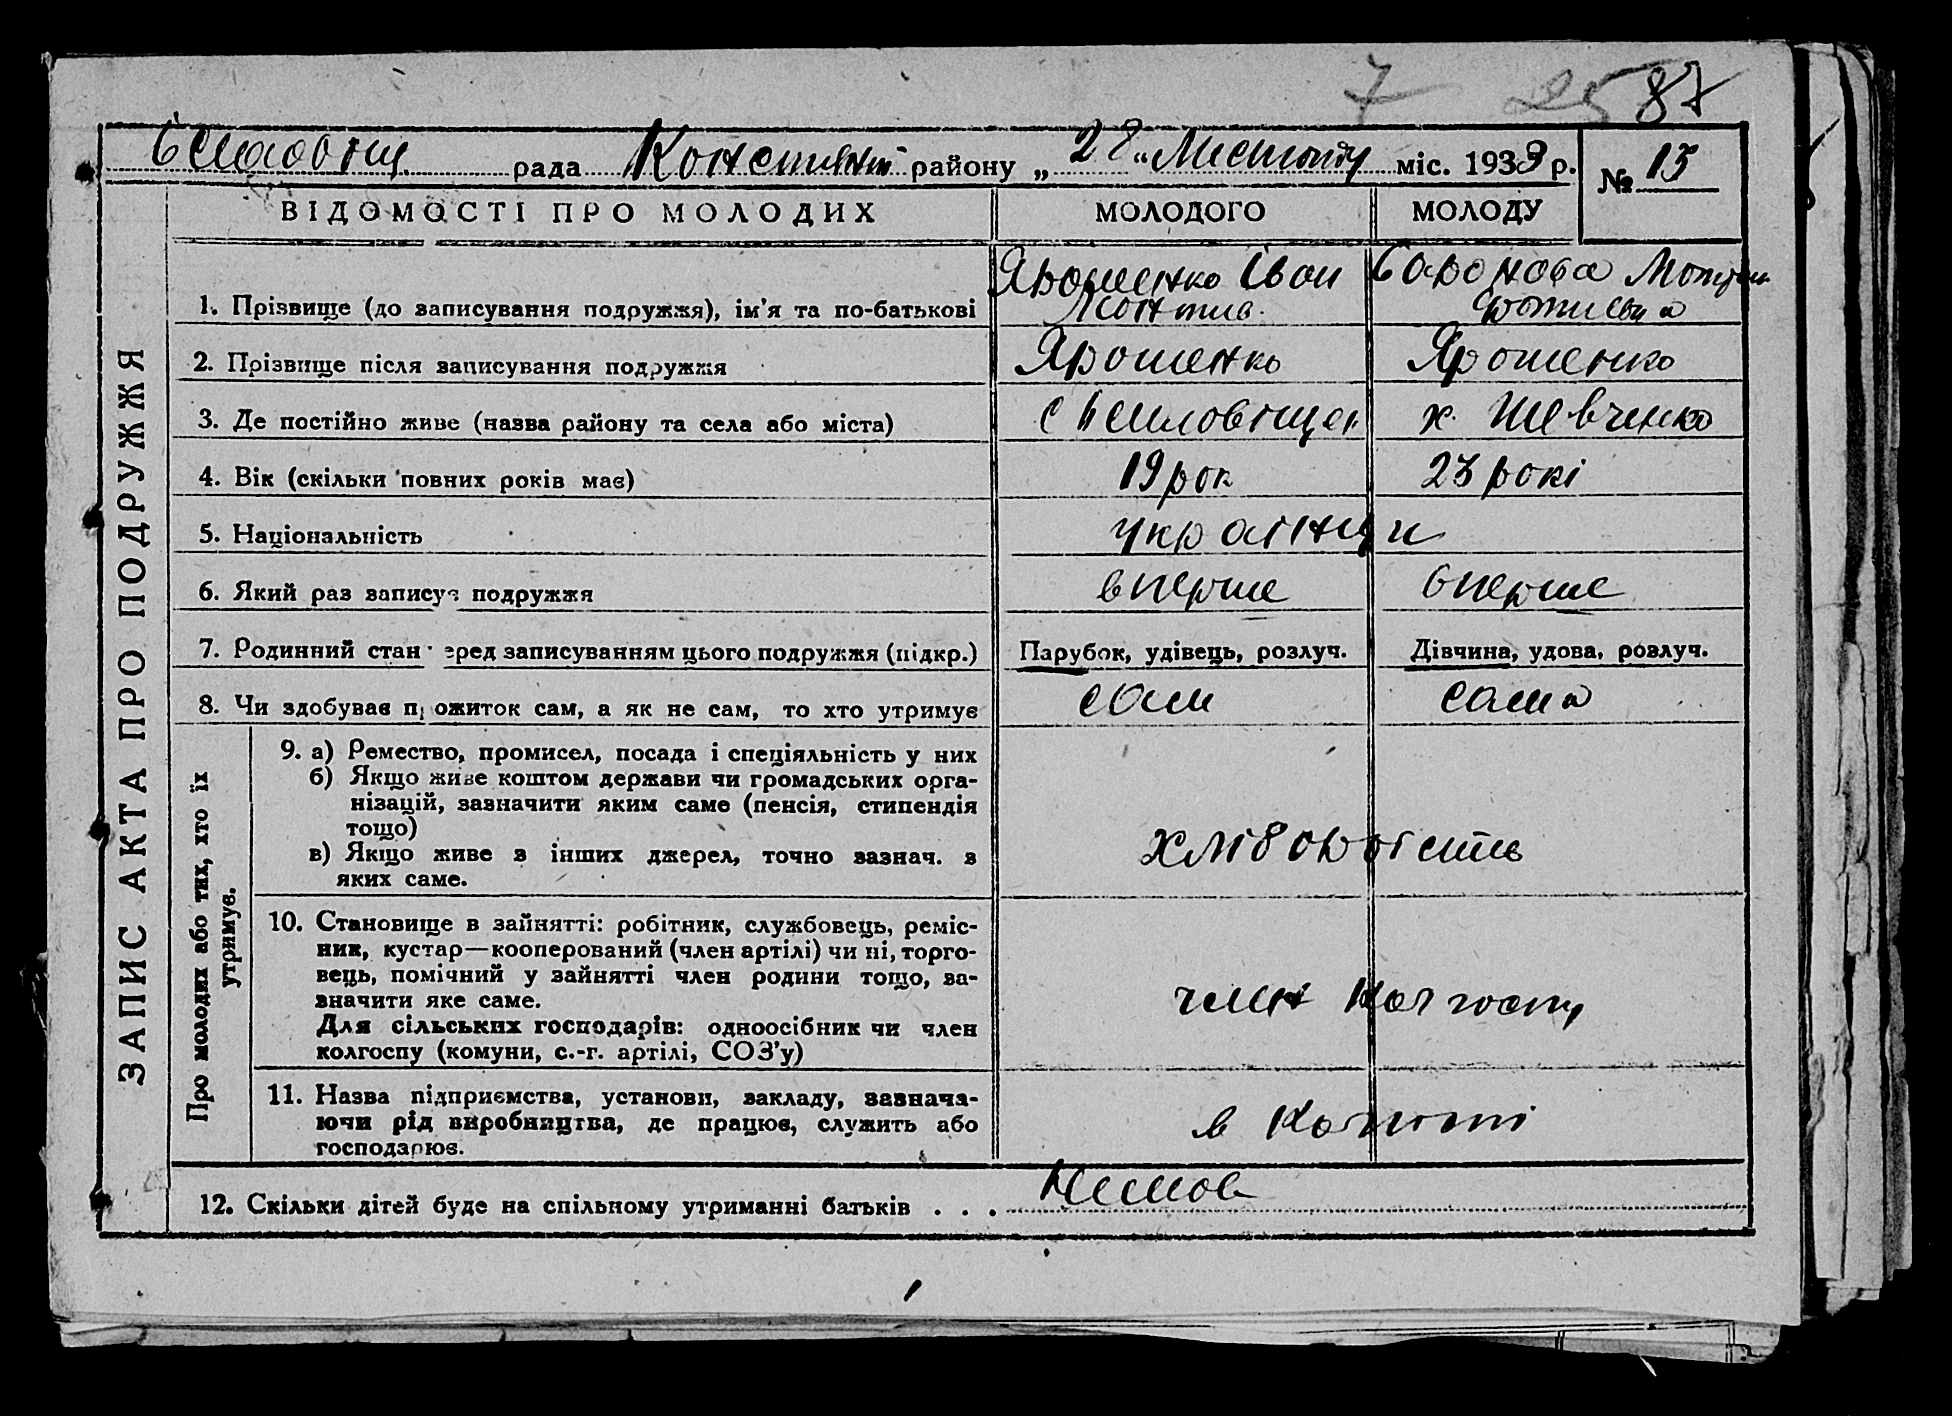 7 25 87
рада район​у „28" Листопаду міс. 1933 р. № 15
ЗАПИС АКТА ПРО ПОДРУЖЖЯ
ВІДОМОСТІ ПРО МОЛОДИХ МОЛОДОГО МОЛОДУ
Ярошенко Іван Баронова
1. Прізвище (до записування подружжя), ім'я та по-батькові
2. Прізвище після записування подружжя Ярошенко Ярошенко
3. Де постійно живе (назва району та села або міста) с х. Шевченко
4. Вік (скільки повних років має) 19 рок 23 рокі
5. Національність українци
6. Який раз записує подружжя вперше вперше
7. Родинний стан перед записуванням цього подружжя (підкр.) Парубок, удівець, розлуч. Дівчина, удова, розлуч.
8. Чи здобував прожиток сам, а як не сам, то хто утримує сам сама
Про молодих або тих, хто їх
утримує.
9. а) Ремество, промисел, посада і спеціяльність у них
б) Якщо живе коштом держави чи громадських орга-
нізацій, зазначити яким саме (пенсія, стипендія
тощо)
в) Якщо живе з інших джерел, точно зазнач. з
яких саме.
хліборобство
10. Становище в зайнятті: робітник, службовець, реміс-
ник, кустар—кооперований (член артілі) чи ні, торго-
вець, помічний у зайнятті член родини тощо, за-
значити яке саме.
Для сільських господарів: одноосібник чи член
колгоспу (комуни, с.-г. артілі, СОЗ'у)
член колгоспу
11. Назва підприємства, установи, закладу, зазнача-
ючи рід виробництва, де працює, служить або
господарює.
в колгоспі
12. Скільки дітей буде на спільному утриманні батьків . . . Немає